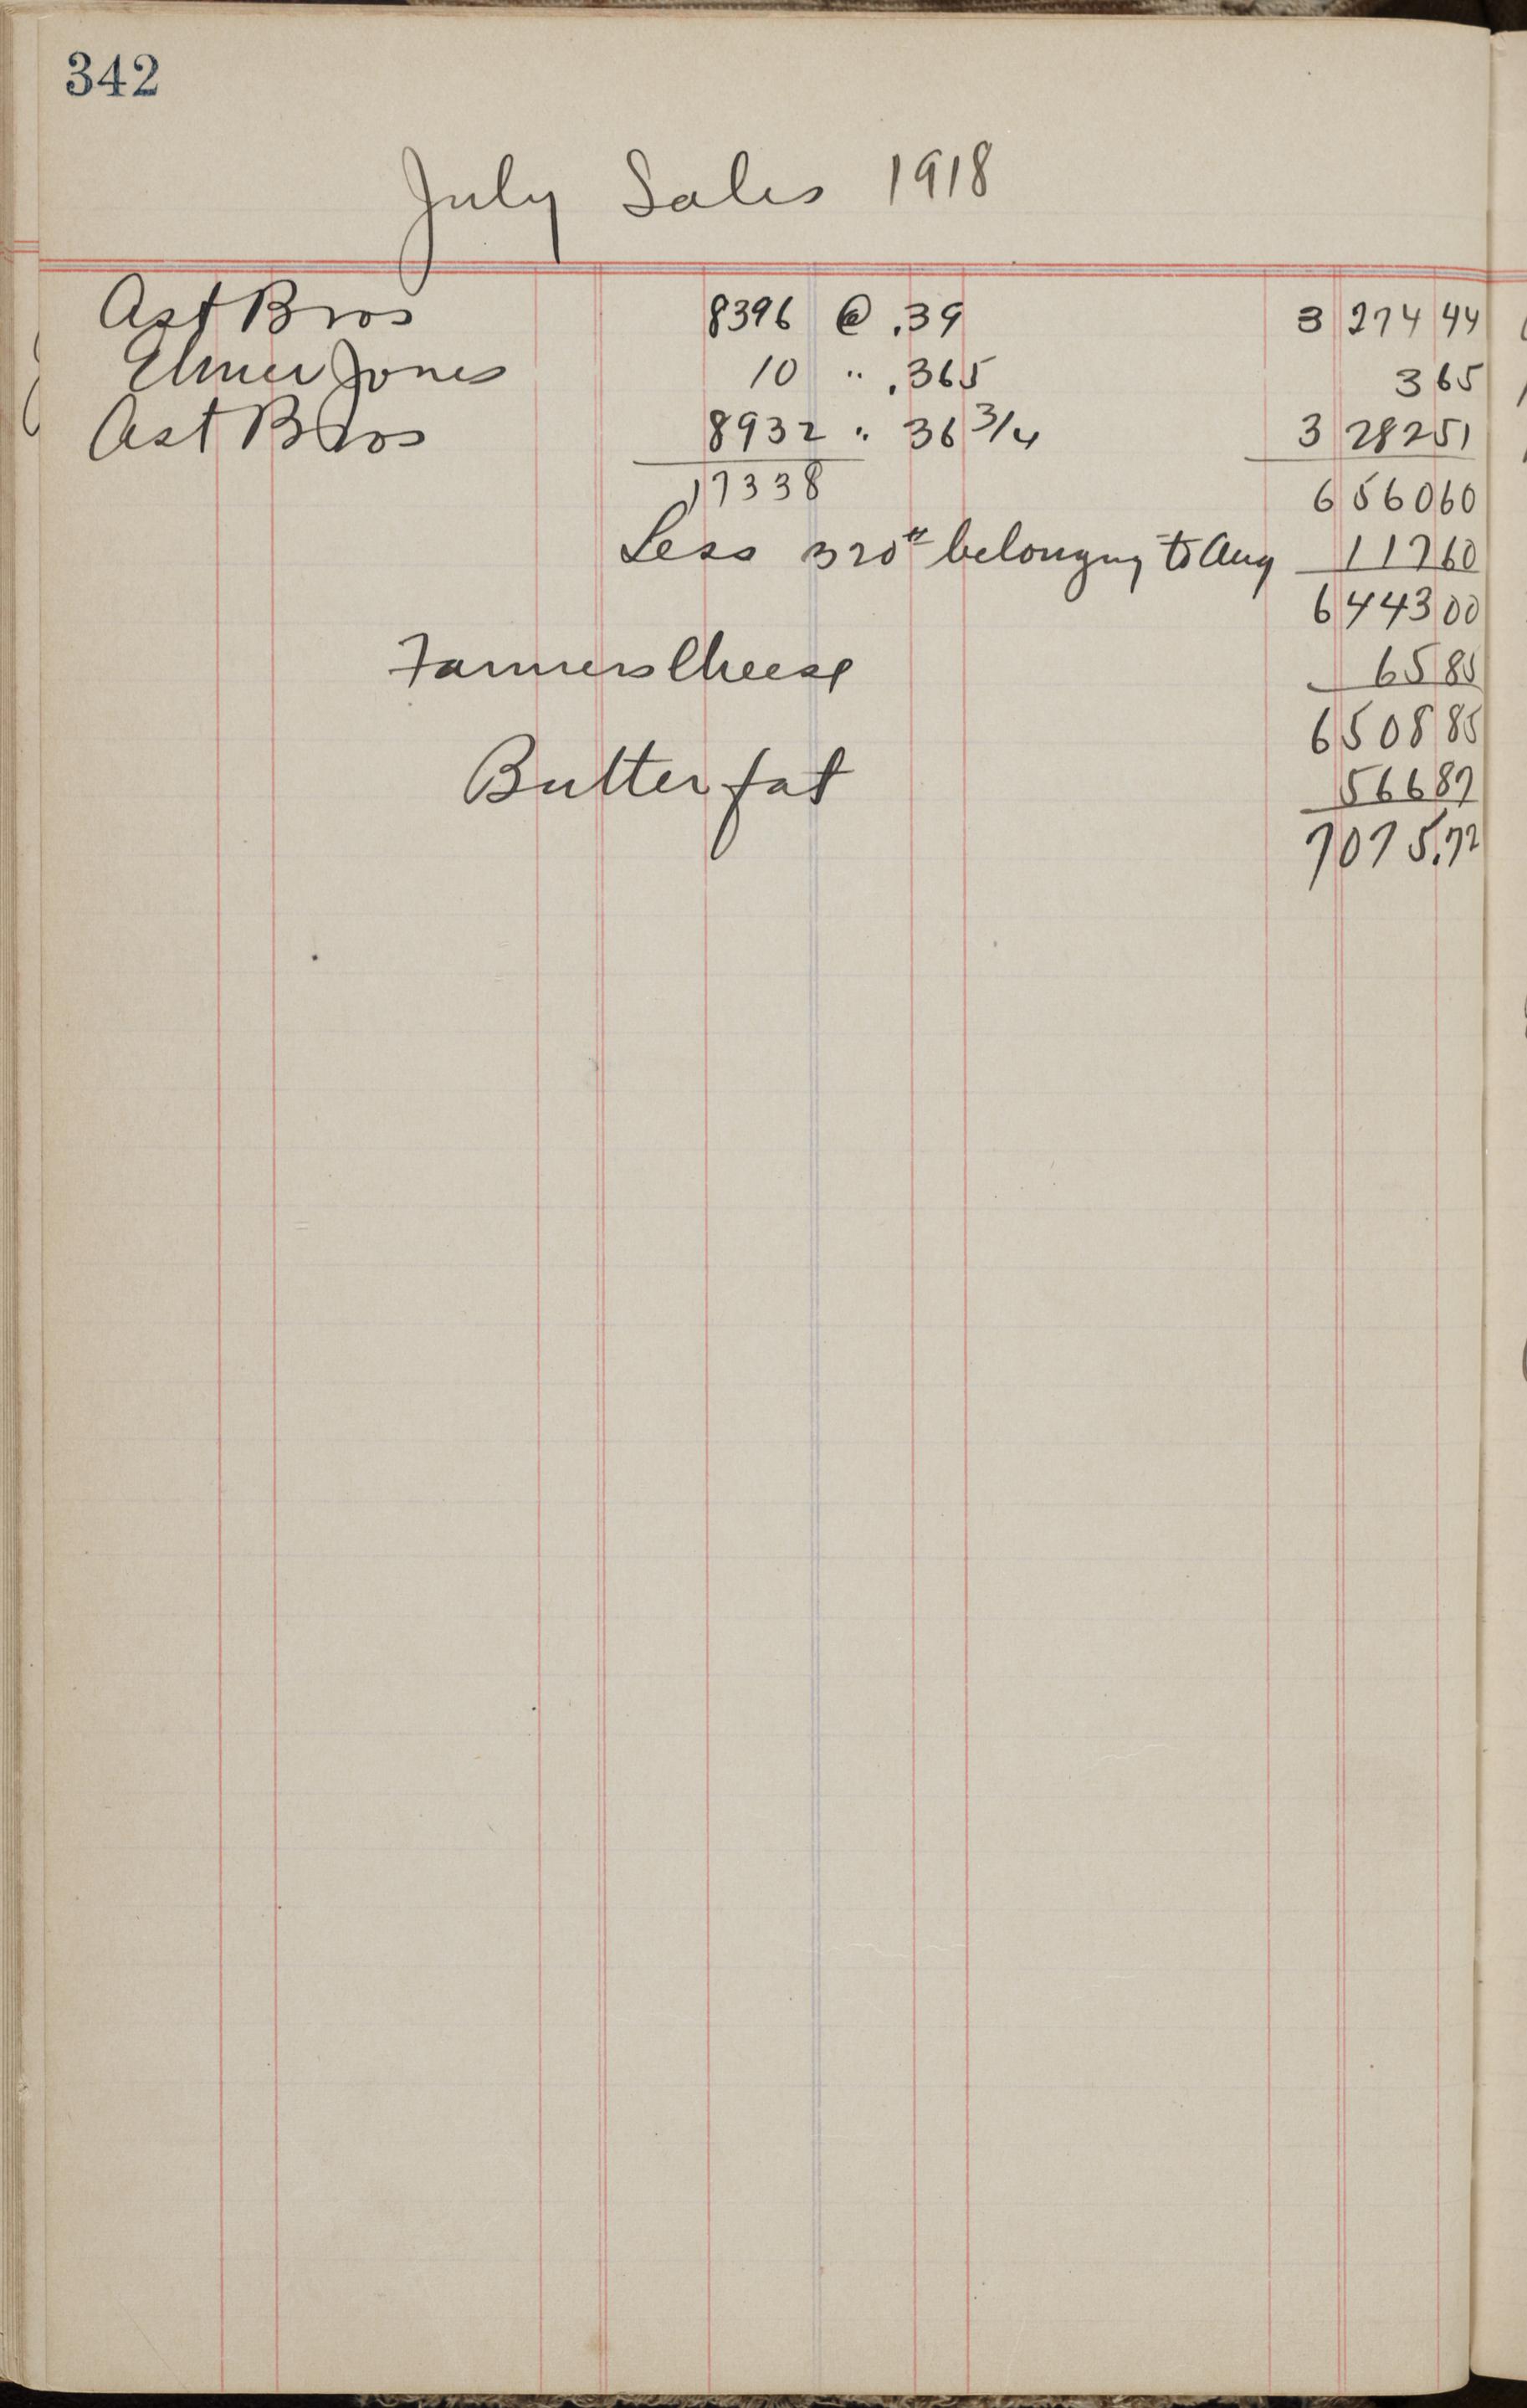 342
July Sales 1918
Ast Bros 8396 @ .39 3 274 44
Elmer Jones 10 " .365 3 65
Ast Bros 8932 " 36 3/4 3 282 51
17338 6 560 60
Less 320# belonging to Aug 117 60
6 443 00
Farmers Cheese 65 85
6 508 85
Butter fat 566 87
7075.72